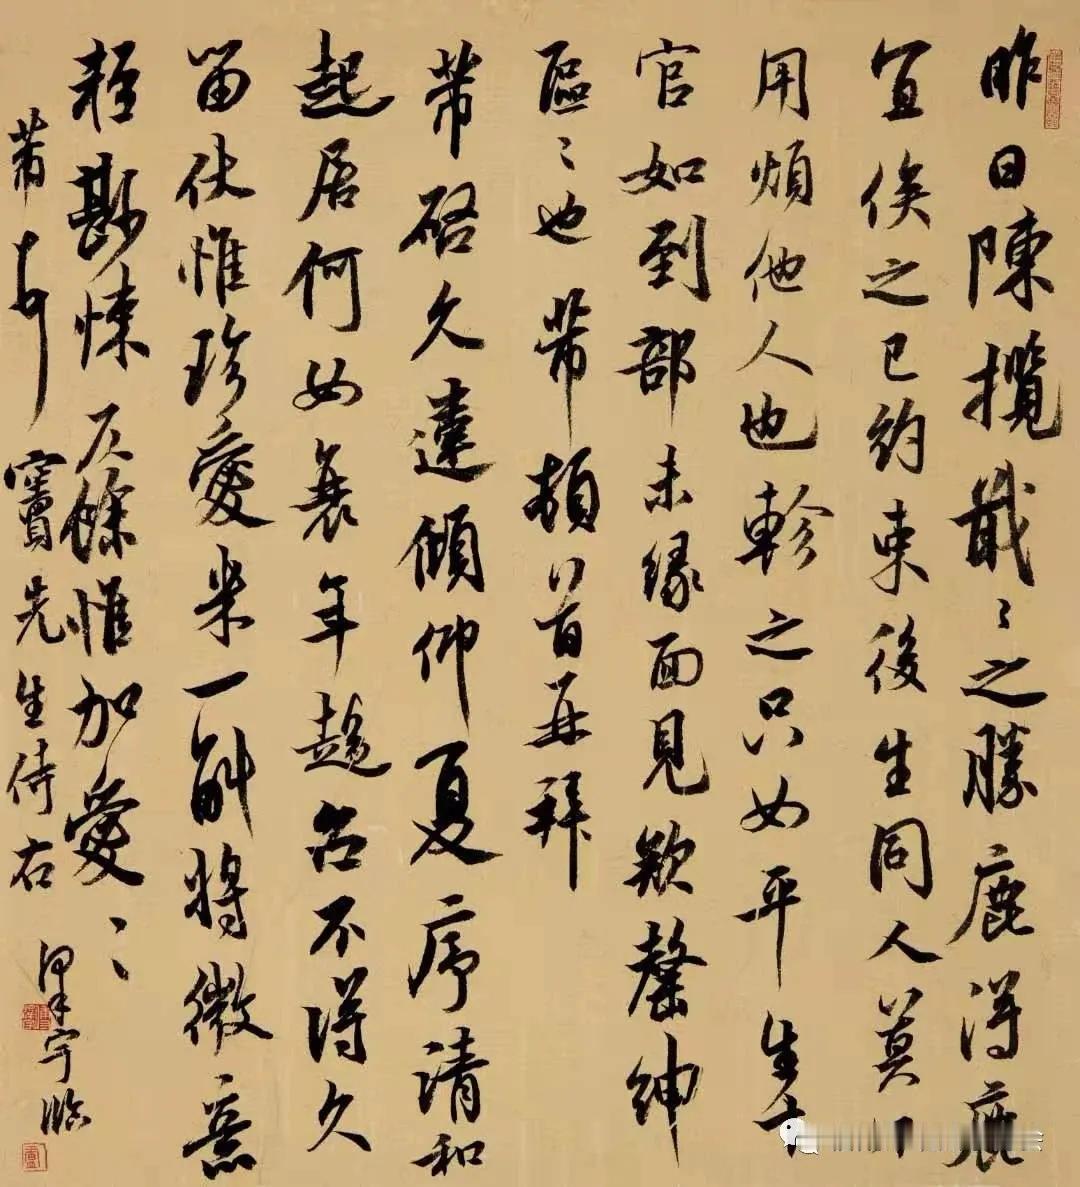 昨日陳攬戢〻之勝鹿得鹿
宜俟之已約束後生同人莫
用煩他人也軫之只如平生
官如到部未緣面見罄紳
區〻也芾頓首再拜
芾啓久違傾仰夏序清和
起居何如衰年趨召不得久
留伏惟珍愛米一斛將微意
輕尠悚仄餘惟加愛〻
芾頓首竇先生侍右
澤宇臨